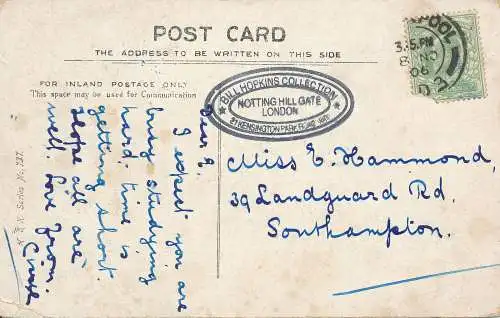 POST CARD
THE ADDRESS TO BE WRITTEN ON THIS SIDE
FOR INLAND POSTAGE ONLY
This space may be used for Communication
POOL
3.45.PM
8 NO
06
BILL HOPKINS COLLECTION
NOTTING HILL GATE
LONDON
KENSINGTON PARK ROAD
Dear E.
I expect you are
busy studying
hard. time is
getting short.
Hope all are
well. Love from.
Miss E. Hammond,
39 Landguard Rd,
Southampton.
Series No. 727.